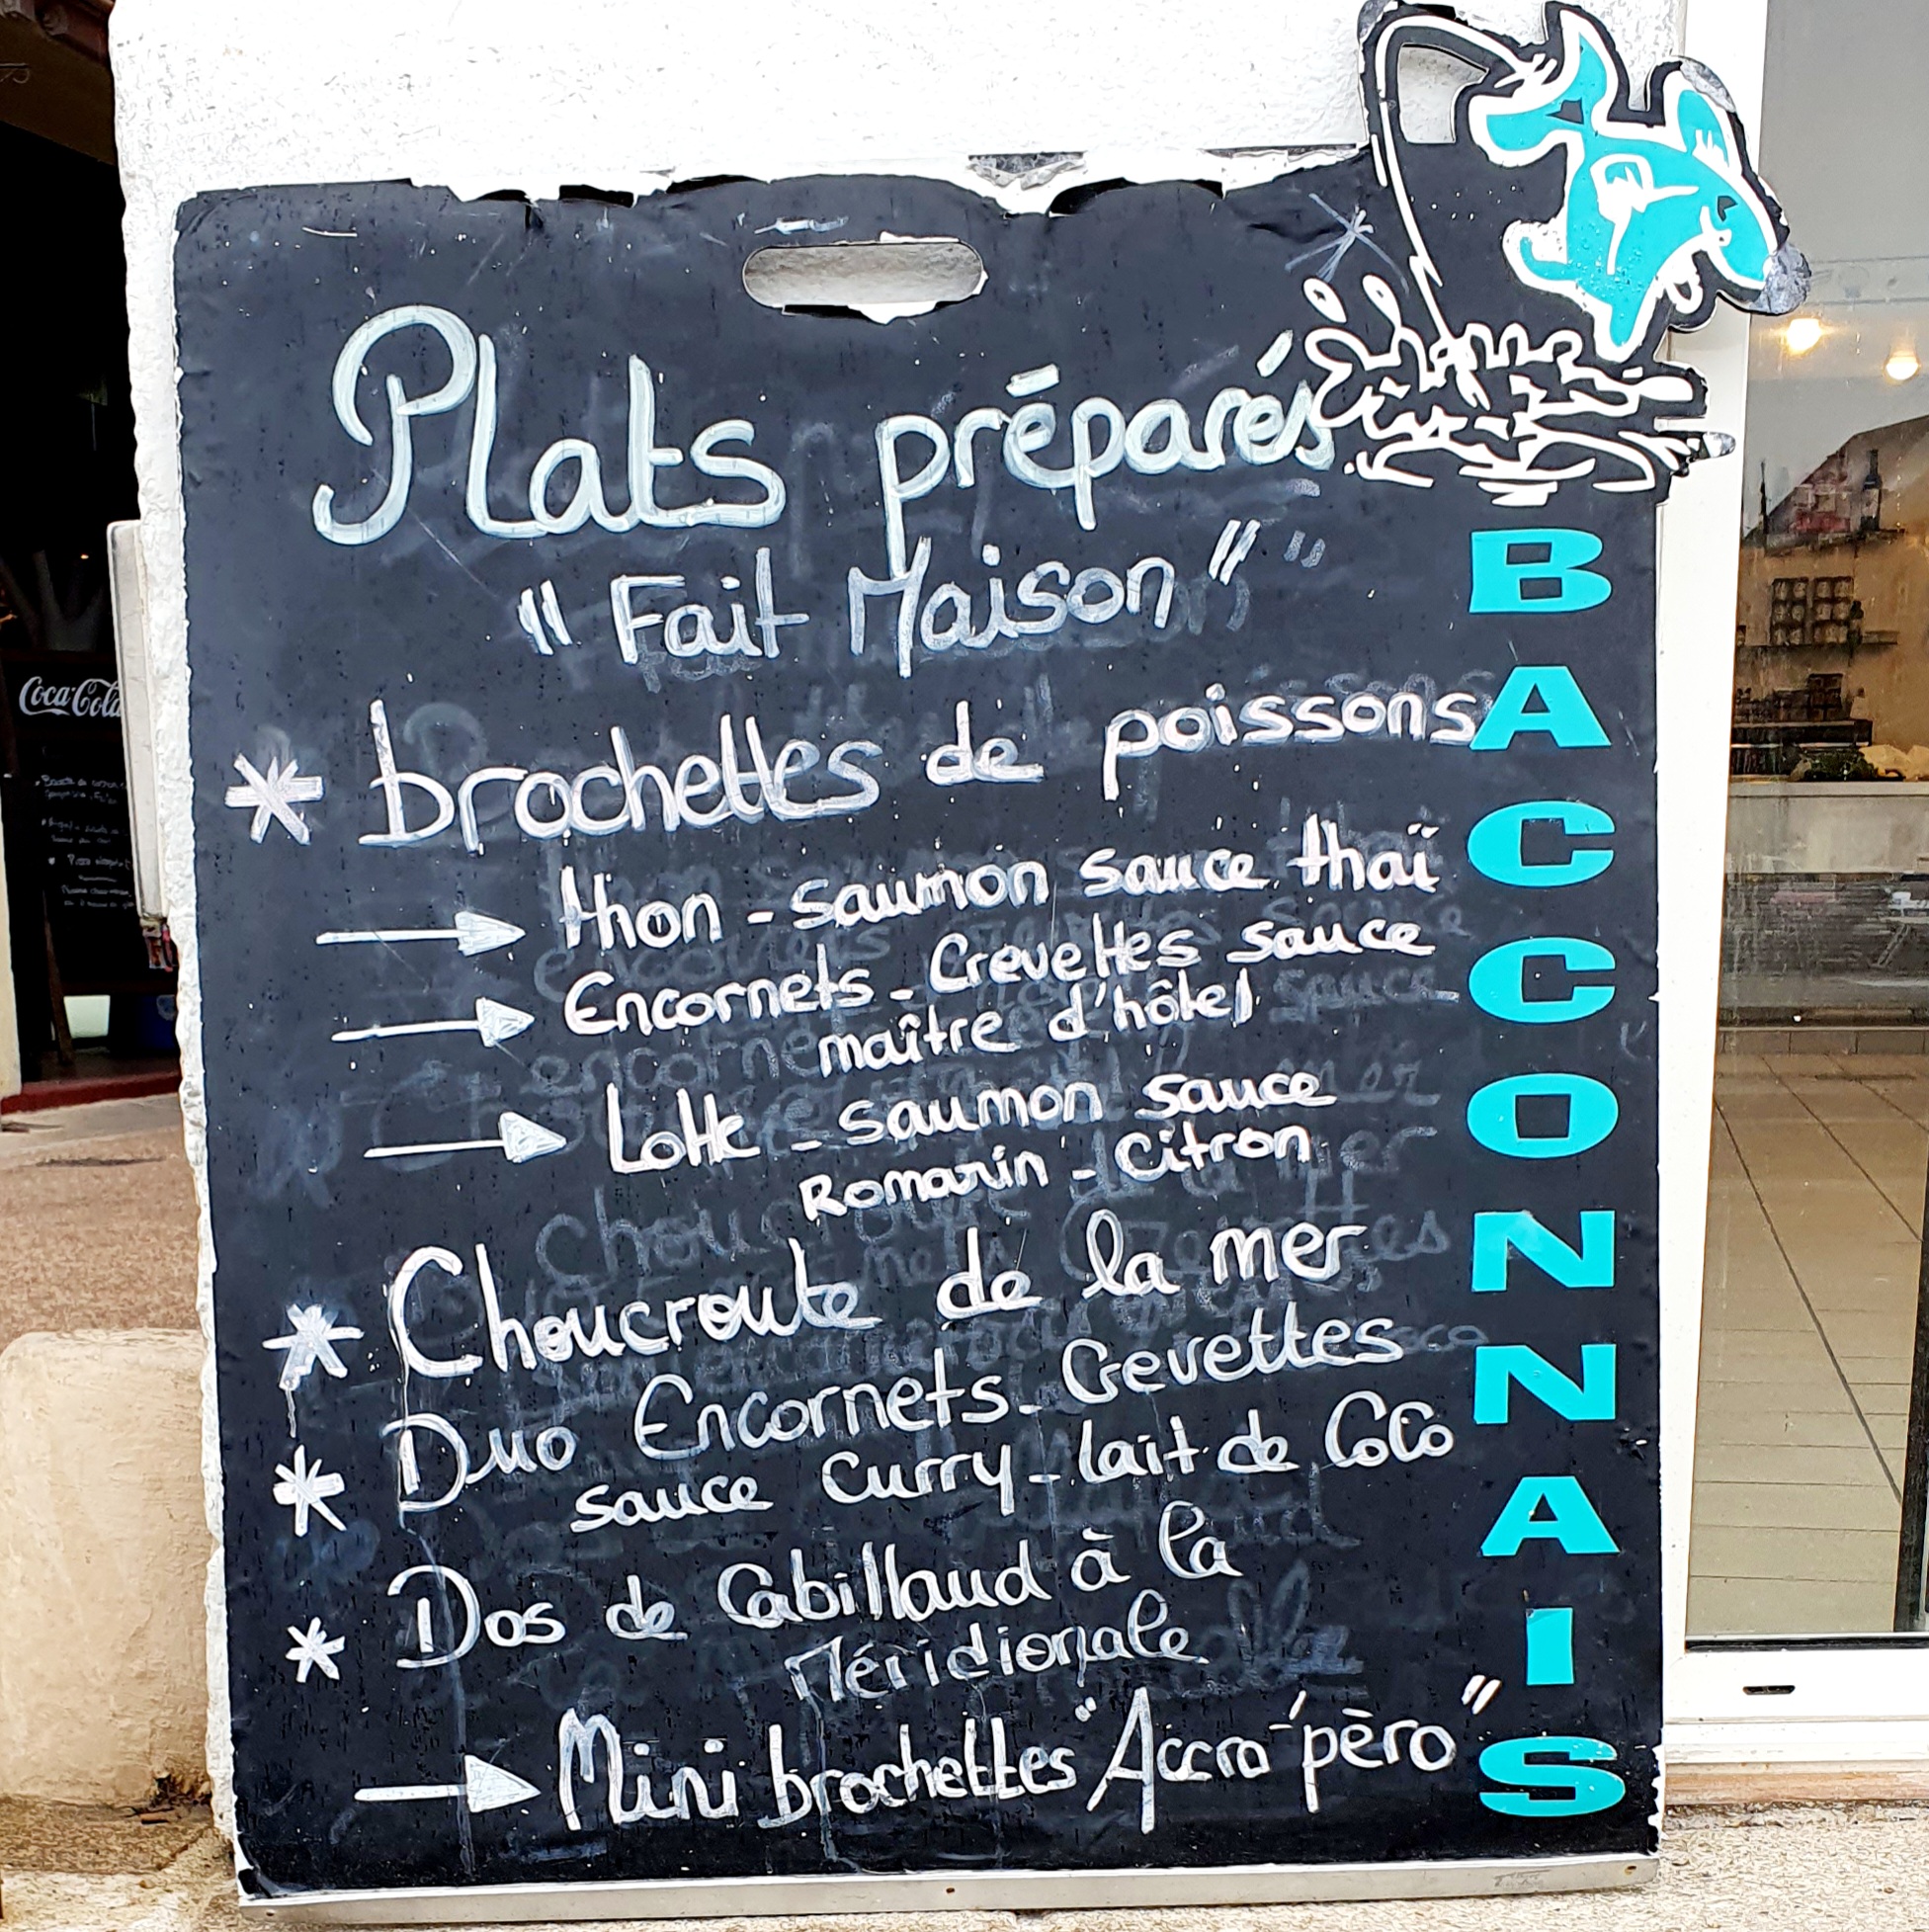 Plats préparés
" Fait Maison "
* brochettes de poissons
→ thon - saumon sauce thaï
→ Encornets - Crevettes sauce
maître d'hôtel
→ Lotte - saumon sauce
Romarin - Citron
* Choucroute de la mer
* Duo Encornets - Crevettes
sauce curry - lait de CoCo
* Dos de Cabillaud à la
Méridionale
→ Mini brochettes "Accro-'pèro"
BACCONNAIS
Coca-Cola